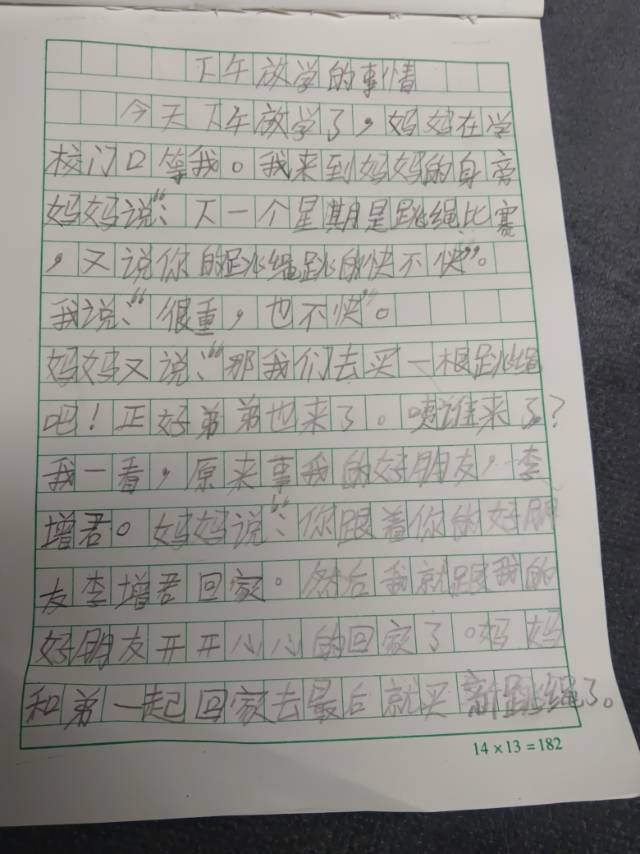 下午放学的事情
今天下午放学了,妈妈在学
校门口等我。我来到妈妈的身旁
妈妈说:“下一个星期是跳绳比赛
,又说你的跳绳跳的快不快”。
我说:“很重,也不快”。
妈妈又说:“那我们去买一根跳绳
吧!正好弟弟也来了。咦谁来了?
我一看,原来事我的好朋友,李
增君。妈妈说:“你跟着你的好朋
友李增君回家。然后我就跟我的
好朋友开开心心的回家了。妈妈
和弟一起回家去最后就买新跳绳了。
14×13=182